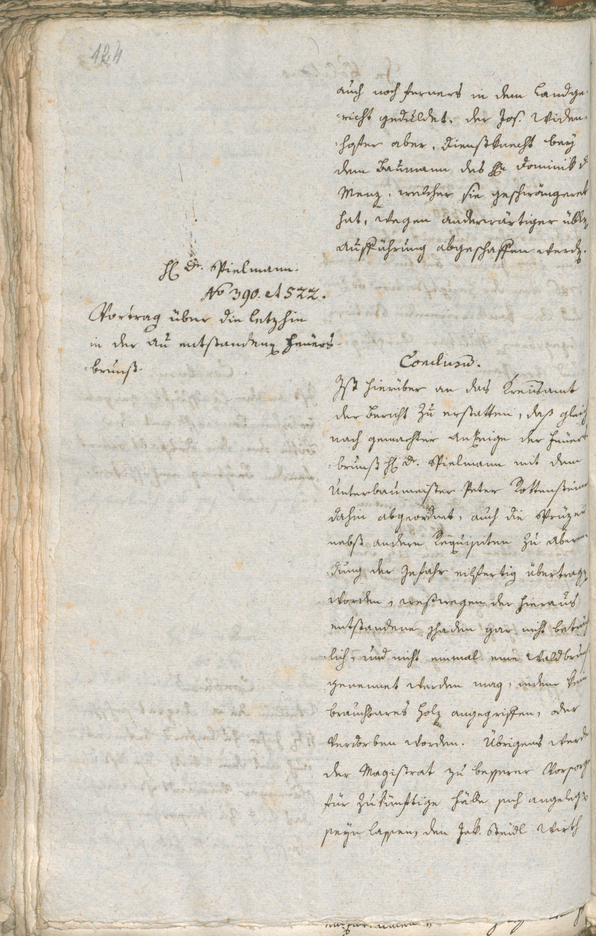 124
auch noch ferners in dem Landge-
richt geduldet, der Jos. Widen-
hofer aber, Dienstknecht bey
dem Baumann des H. Dominik
Menz, welcher sie geschwängeret
hat, wegen anderwärtiger üblen
Aufführung abgeschaffen werde.
H. D. Spielmann.
No 390. et 522.
Vortrag über die letzhin
in der Au entstandene Feuers-
brunst.
Conclusum.
Ist hierüber an das Kreisamt
der Bericht zu erstatten, daß gleich
nach gemachter Anzeige der Feuers-
brunst H. D. Spielmann mit dem
Unterbaumeister Peter Rottensteiner
dahin abgeordnet, auch die Sprüzen
nebst andern Requisiten zu
dung der Gefahr eilfertig übertragen
worden, weßwegen der hieraus
entstandene Schaden gar nicht beträcht-
lich, und nicht einmal eine Waldbrunst
genennet werden mag, indem kein
brauchbares Holz angegriffen, oder
verdorben worden. Übrigens werde
der Magistrat zu besserer Vorsorg
für zukünftige Fälle sich angelegen
seyn lassen, den Jak. Steidl Wirth